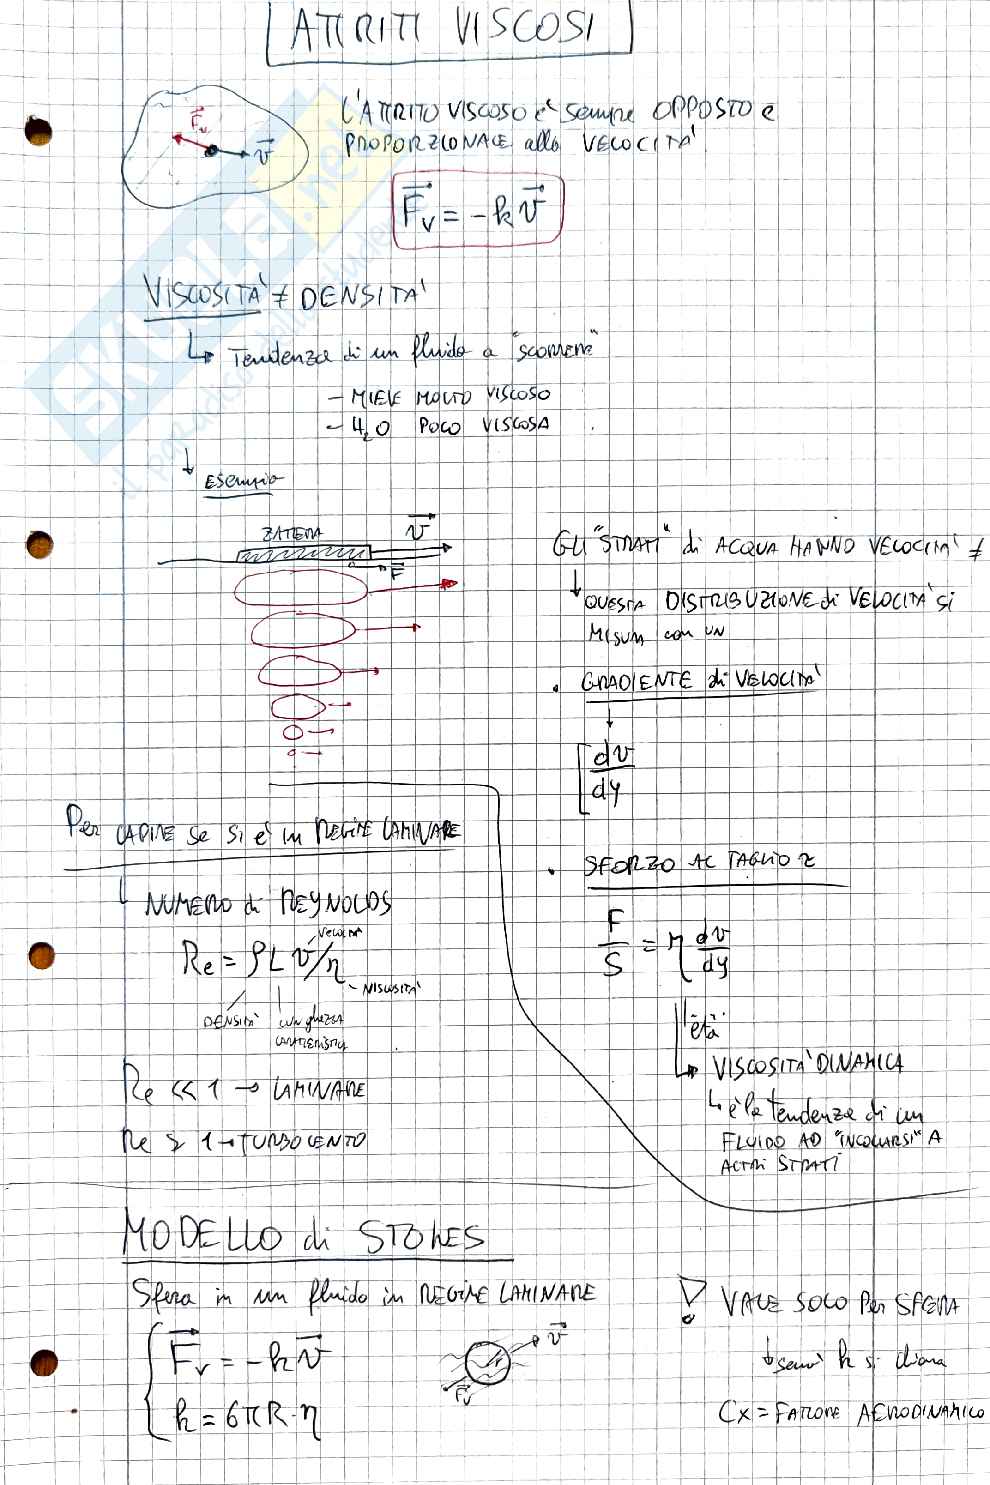 ATTRITI VISCOSI
L'ATTRITO VISCOSO è sempre OPPOSTO e
PROPORZIONALE alla VELOCITA'
F_v
v
F_v = -k v
VISCOSITA' ≠ DENSITA'
Tendenza di un fluido a "scorrere"
- MIELE MOLTO VISCOSO
- H₂O POCO VISCOSA
Esempio
ZATTERA
v
F
GLI "STRATI" di ACQUA HANNO VELOCITA' ≠
QUESTA DISTRIBUZIONE di VELOCITA' si
MISURA con UN
. GRADIENTE di VELOCITA'
dv
dy
Per CAPIRE se si è in REGIME LAMINARE
NUMERO di REYNOLDS
Re = ρ L v/η
VELOCITA'
VISCOSITA'
DENSITA'
lunghezza
caratteristica
Re << 1 → LAMINARE
Re > 1 → TURBOLENTO
. SFORZO AL TAGLIO τ
F/S = η dv/dy
"età"
VISCOSITA' DINAMICA
è la tendenza di un
FLUIDO AD "INCOLLARSI" A
ALTRI STRATI
MODELLO di STOKES
Sfera in un fluido in REGIME LAMINARE
F_v = -k v
k = 6πR·η
v
F_v
! VALE SOLO Per SFERA
sennò k si chiama
Cx = FATTORE AERODINAMICO
SKUOLA.net
il paradiso dello studente